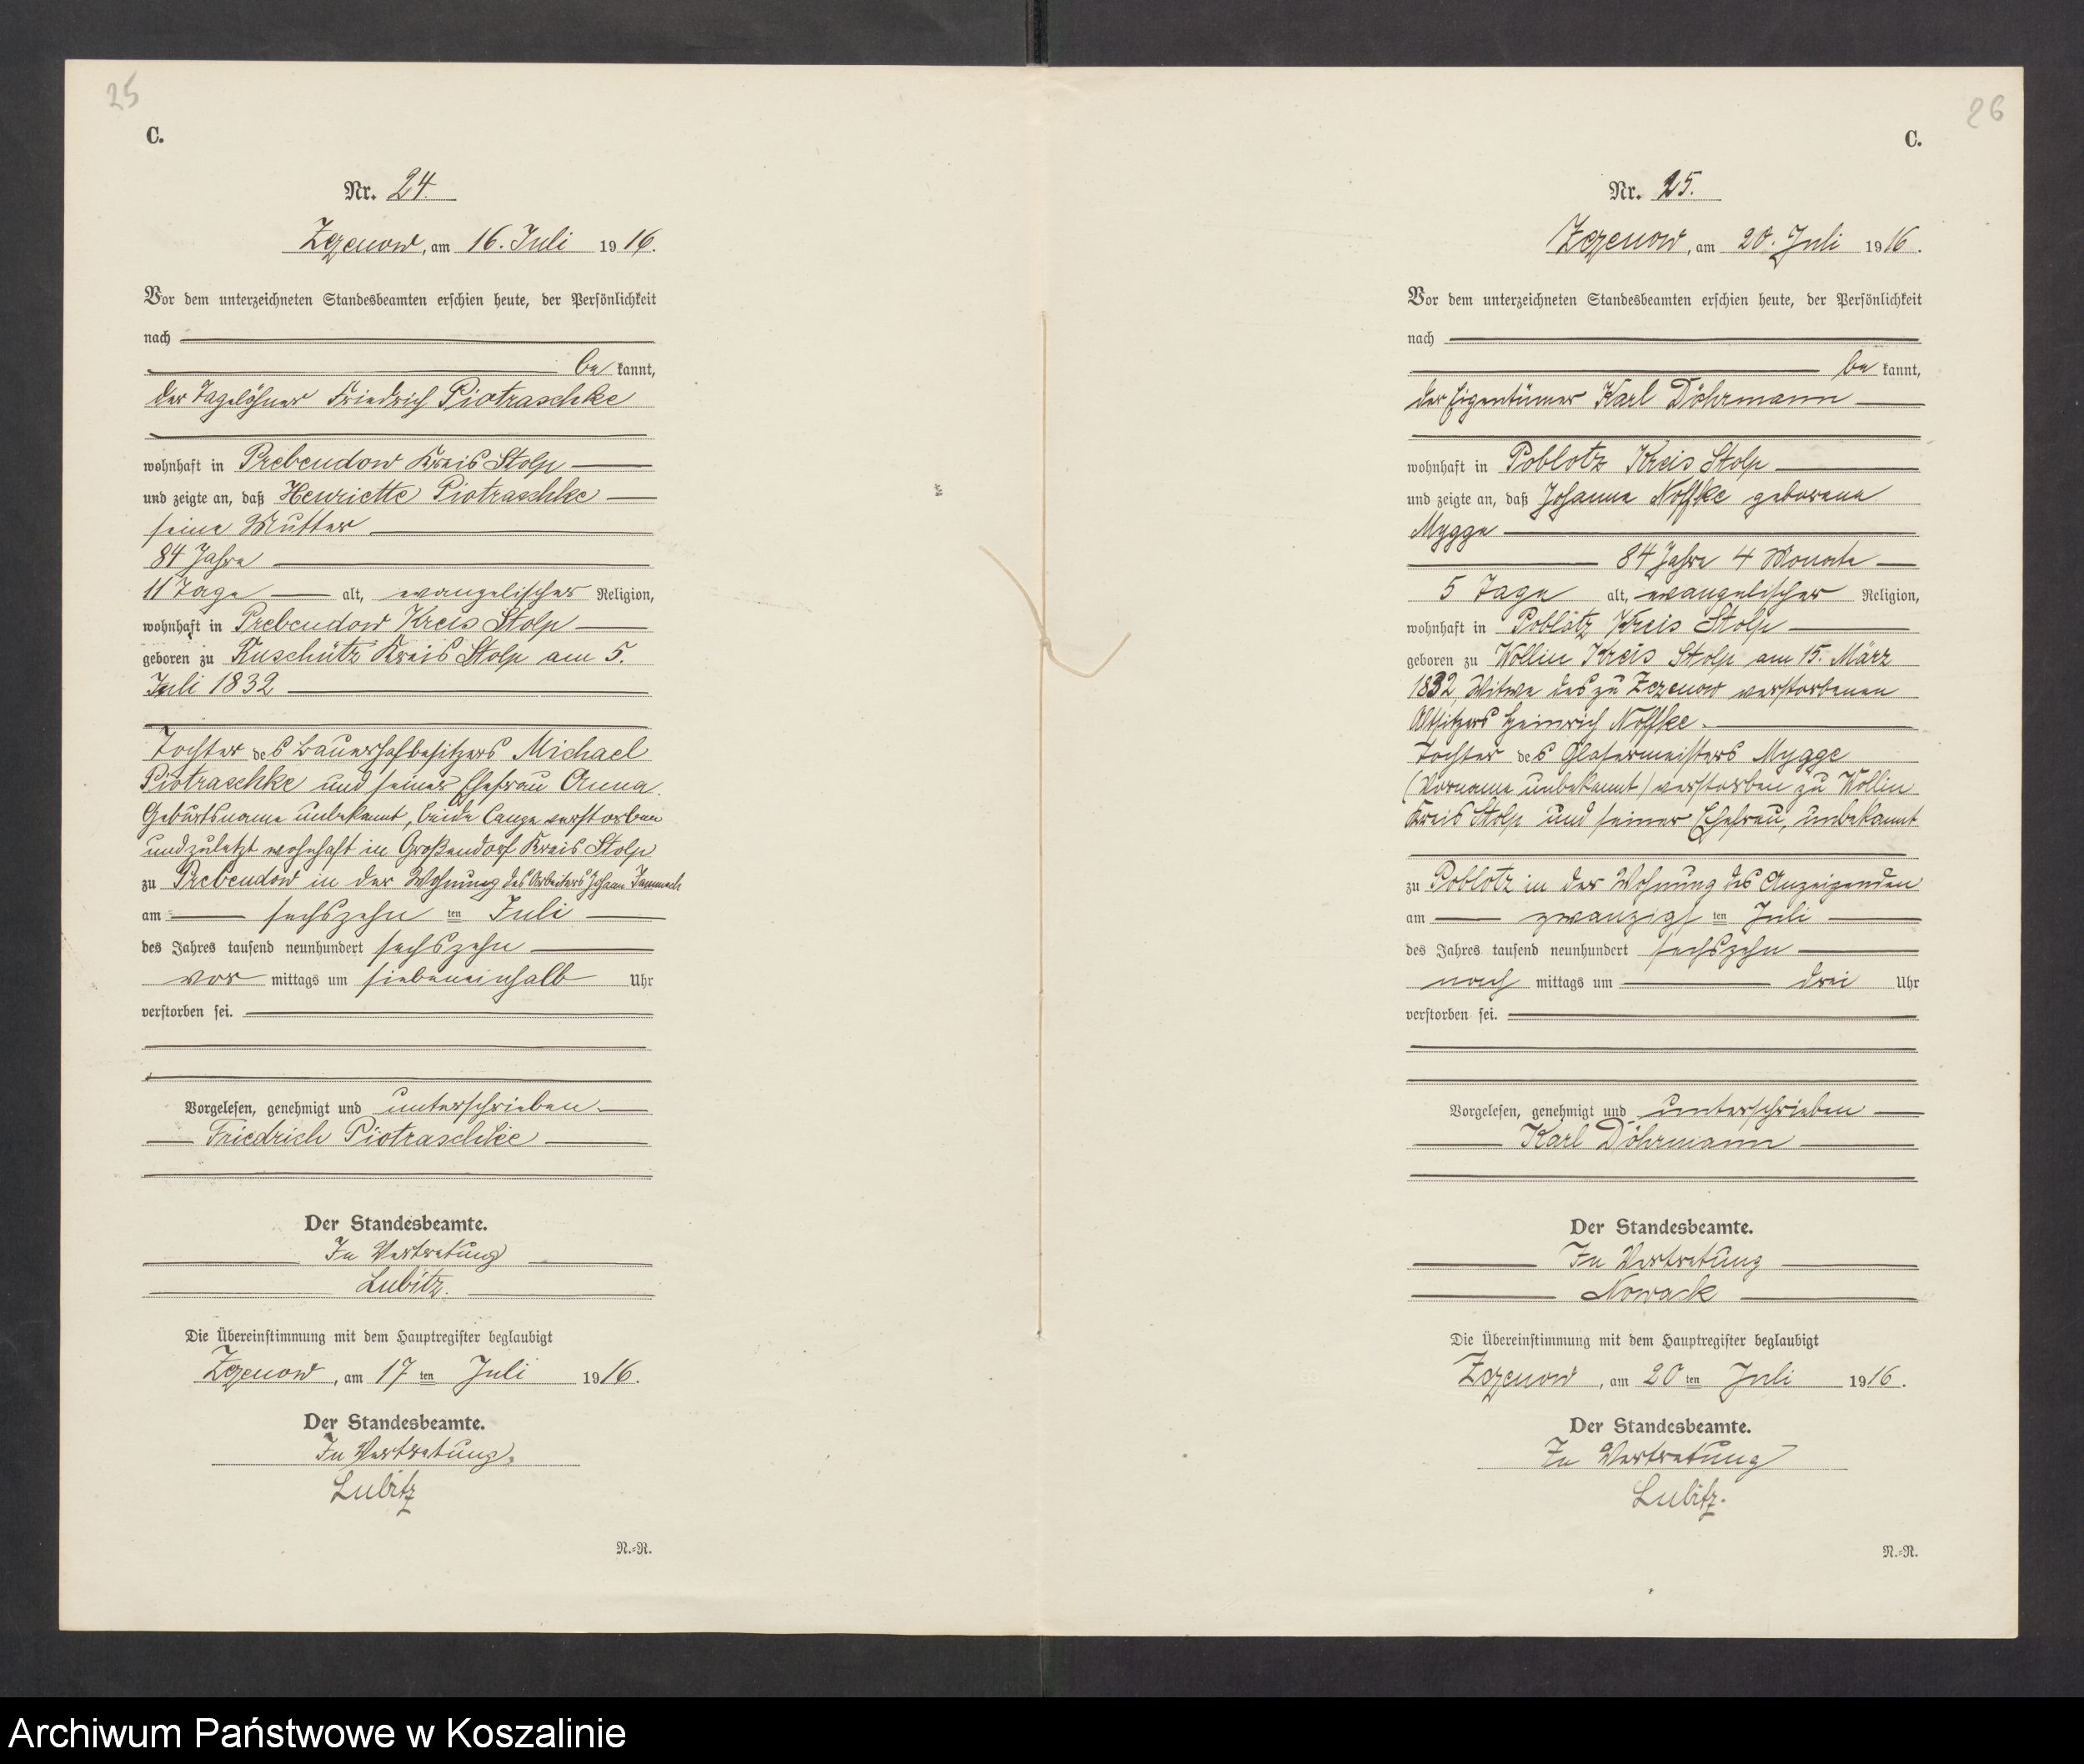 25
C.
Nr. 24.
Zezenow, am 16. Juli 1916.
Vor dem unterzeichneten Standesbeamten erschien heute, der Persönlichkeit
nach
be kannt,
der Tagelöhner Friedrich Piotraschke
wohnhaft in Prebendow Kreis Stolp
und zeigte an, daß Henriette Piotraschke
seine Mutter
84 Jahre
11 Tage alt, evangelischer Religion,
wohnhaft in Prebendow Kreis Stolp
geboren zu Ruschütz Kreis Stolp am 5.
Juli 1832
Tochter des Bauerhofbesitzers Michael
Piotraschke und seiner Ehefrau Anna
Geburtsname unbekannt, beide lange verstorben
und zuletzt wohnhaft in Großendorf Kreis Stolp
zu Prebendow in der Wohnung des Arbeiters Johann
am sechszehn ten Juli
des Jahres tausend neunhundert sechszehn
vor mittags um siebeneinhalb Uhr
verstorben sei.
Vorgelesen, genehmigt und unterschrieben
Friedrich Piotraschke
Der Standesbeamte.
In Vertretung
Lubitz.
Die Übereinstimmung mit dem Hauptregister beglaubigt
Zezenow, am 17 ten Juli 1916.
Der Standesbeamte.
In Vertretung.
Lubitz
N.-R.
26
C.
Nr. 25.
Zezenow, am 20. Juli 1916.
Vor dem unterzeichneten Standesbeamten erschien heute, der Persönlichkeit
nach
be kannt,
der Eigentümer Karl Döhrmann
wohnhaft in Poblotz Kreis Stolp
und zeigte an, daß Johanne Noffke geborene
Mygge
84 Jahre 4 Monate
5 Tage alt, evangelischer Religion,
wohnhaft in Poblotz Kreis Stolp
geboren zu Wollin Kreis Stolp am 15. März
1832, Witwe des zu Zezenow verstorbenen
Altsitzers Heinrich Noffke.
Tochter des Glasermeisters Mygge
(Vorname unbekannt) verstorben zu Wollin
Kreis Stolp und seiner Ehefrau, unbekannt
zu Poblotz in der Wohnung des Anzeigenden
am zwanzigs ten Juli
des Jahres tausend neunhundert sechszehn
nach mittags um drei Uhr
verstorben sei.
Vorgelesen, genehmigt und unterschrieben
Karl Döhrmann
Der Standesbeamte.
In Vertretung
Nowack
Die Übereinstimmung mit dem Hauptregister beglaubigt
Zezenow, am 20 ten Juli 1916.
Der Standesbeamte.
In Vertretung
Lubitz.
N.-R.
Archiwum Państwowe w Koszalinie